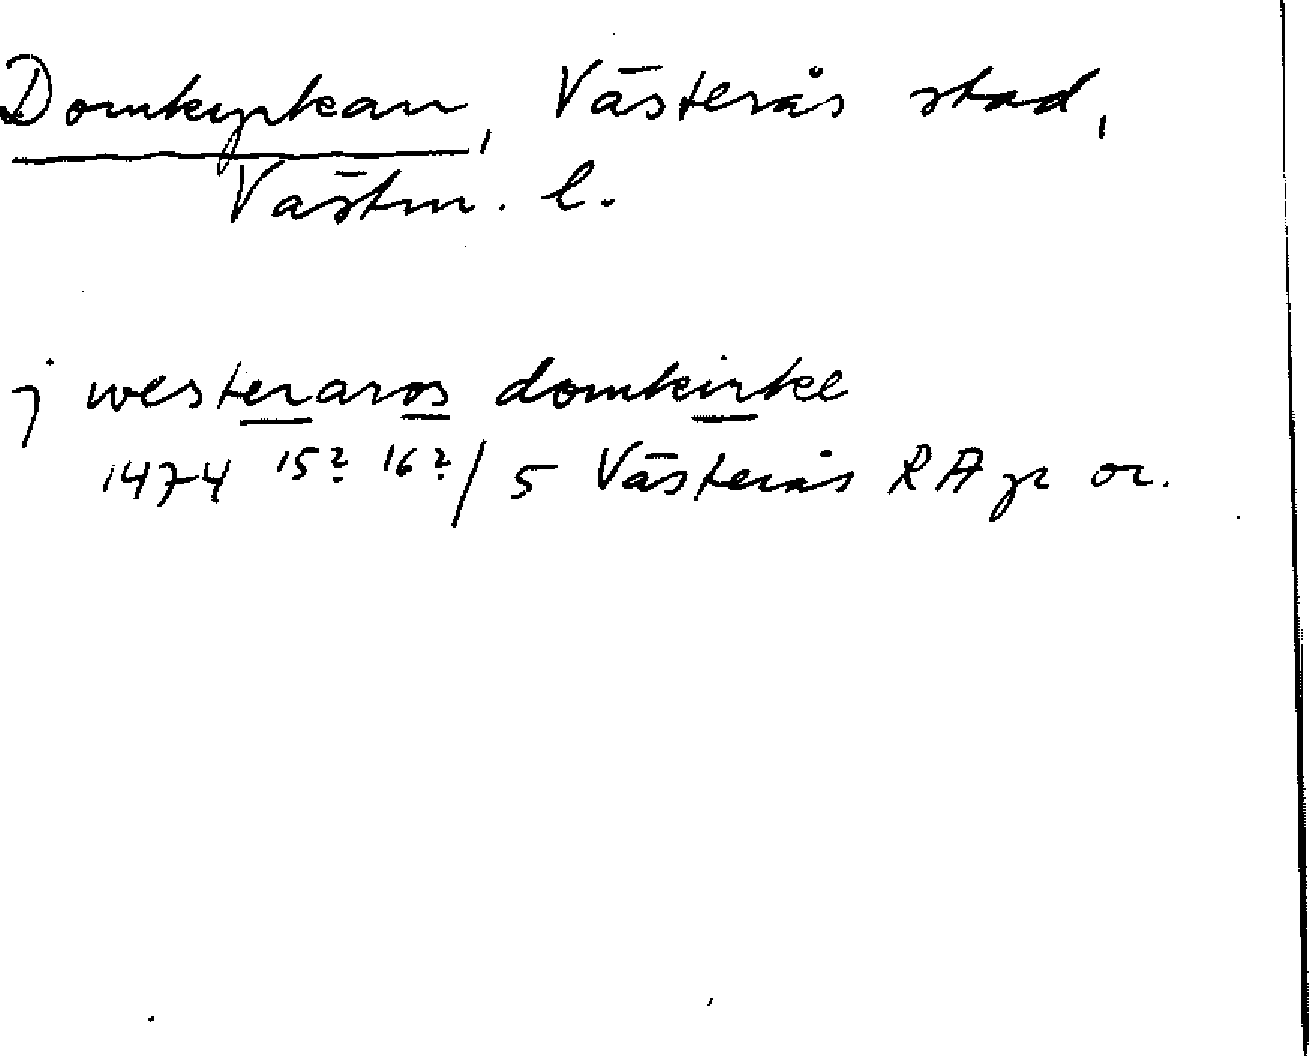 Domkyrkan, Västerås stad,
Västm. l.
j westeraros domkirke
1474 15? 16?/5 Västerås RA p or.